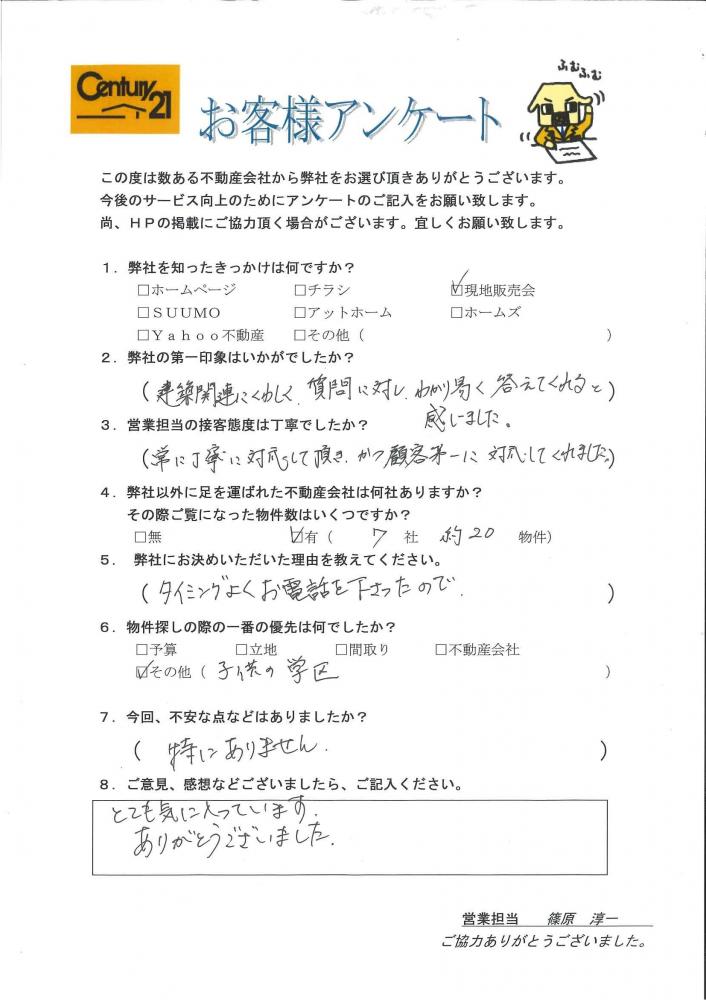 Century 21
ふむふむ
お客様アンケート
この度は数ある不動産会社から弊社をお選び頂きありがとうございます。
今後のサービス向上のためにアンケートのご記入をお願い致します。
尚、ＨＰの掲載にご協力頂く場合がございます。宜しくお願い致します。
１．弊社を知ったきっかけは何ですか？
□ホームページ □チラシ ☑現地販売会
□ＳＵＵＭＯ □アットホーム □ホームズ
□Ｙａｈｏｏ不動産 □その他（ ）
２．弊社の第一印象はいかがでしたか？
（建築関連にくわしく、質問に対し、わかり易く答えてくれると）
感しました。
３．営業担当の接客態度は丁寧でしたか？
（常に丁寧に対応して頂き、かつ顧客第一に対応してくれました。）
４．弊社以外に足を運ばれた不動産会社は何社ありますか？
その際ご覧になった物件数はいくつですか？
□無 ☑有（ 7 社 約20 物件）
５． 弊社にお決めいただいた理由を教えてください。
（タイミングよくお電話を下さったので． ）
６．物件探しの際の一番の優先は何でしたか？
□予算 □立地 □間取り □不動産会社
☑その他（ 子供の学区 ）
７．今回、不安な点などはありましたか？
（ 特にありません． ）
８．ご意見、感想などございましたら、ご記入ください。
とても気に入っています．
ありがとうございました．
営業担当 篠原 淳一
ご協力ありがとうございました。